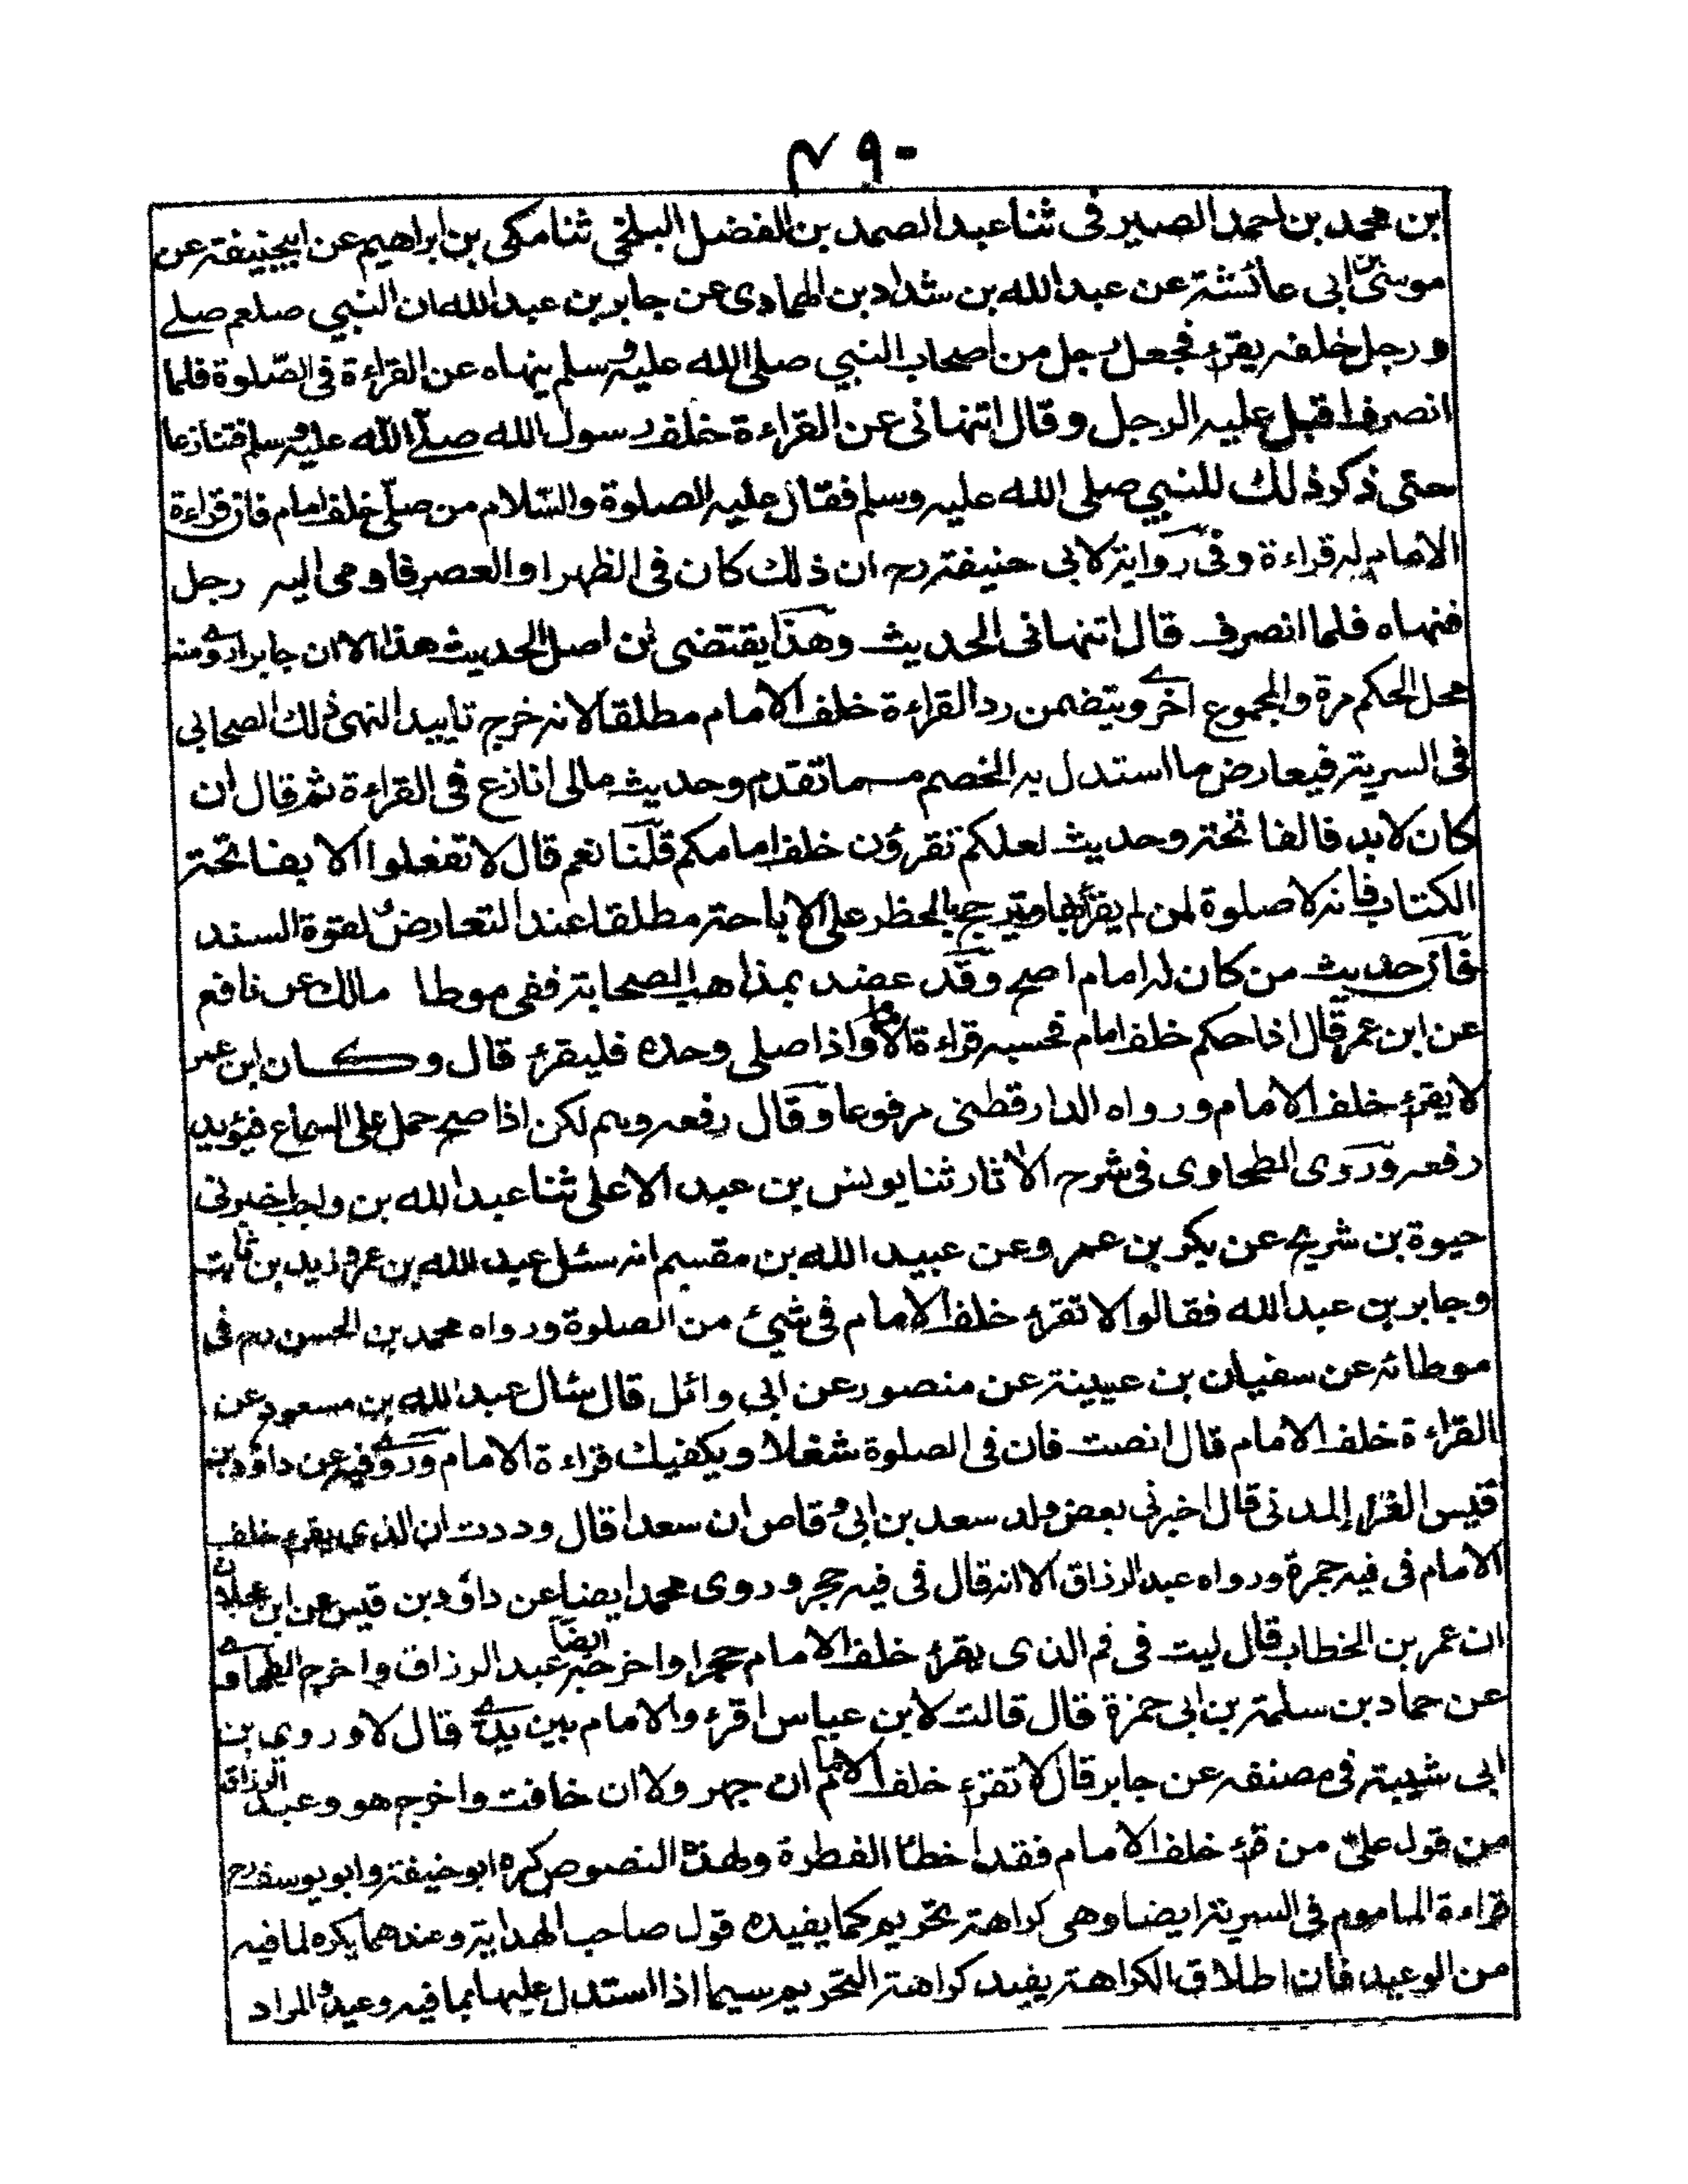 ۴۹۰
بن محمد بن احمد الصیرفی ثنا عبد الصمد بن الفضل البلخی ثنا مکی بن ابراهیم عن ابیحنیفة عن
موسی بن ابی عائشة عن عبد الله بن شداد بن الهادی عن جابر بن عبد الله ان النبی صلعم صلے
و رجل خلفه یقرء فجعل رجل من اصحاب النبی صلی الله علیه وسلم ینهاه عن القراءة فی الصّلوة فلما
انصرف اقبل علیه الرجل وقال اتنهانی عن القراءة خلف رسول الله صلّے اللّه علیه وسلم فتنازعا
حتی ذکر ذلك للنبی صلی الله علیه وسلم فقال علیه الصلوة والسّلام من صلّی خلف امام فان قراءة
الامام له قراءة وفی روایة لابی حنیفة رح ان ذلك کان فی الظهر او العصر فاومی الیه رجل
فنهاه فلما انصرف قال اتنهانی الحدیث وهذا یقتضی ان اصل الحدیث هذا الا ان جابرا روے منه
محل الحکم مرة والمجموع اخرے ویتضمن رد القراءة خلف الامام مطلقا لانه خرج تایید النهی ذلك الصحابی
فی السریة فیعارض ما استدل به الخصم مما تقدم وحدیث مالی انازع فی القراءة ثم قال ان
کان لابد فالفاتحة وحدیث لعلکم تقرؤن خلف امامکم قلنا نعم قال لا تفعلوا الا بفاتحة
الکتاب فانه لا صلوة لمن لم یقرأ بها ویترجح بالحظر علی الاباحة مطلقا عند التعارض لقوة السند
فان حدیث من کان له امام اصح وقد عضد بمذاهب الصحابة ففی موطا مالك عن نافع
عن ابن عمر قال اذا حکم خلف امام فحسبه قراءة الامام واذا صلی وحده فلیقرء قال وکان ابن عمر
لا یقرء خلف الامام ورواه الدارقطنی مرفوعا وقال رفعه وهم لکن اذا صح حمل علی السماع فیؤید
رفعه وروی الطحاوی فی شرح الاثار ثنا یونس بن عبد الاعلی ثنا عبد الله بن وهب اخبرنی
حیوة بن شریح عن بکر بن عمر وعن عبید الله بن مقسم انه سئل عبد الله بن عمر و زید بن ثابت
وجابر بن عبد الله فقالوا لا تقرء خلف الامام فی شیئ من الصلوة ورواه محمد بن الحسن رح فی
موطائه عن سفیان بن عیینة عن منصور عن ابی وائل قال سئال عبد الله بن مسعود عن
القراءة خلف الامام قال انصت فان فی الصلوة شغلا ویکفیك قراءة الامام وروے فیه عن داؤد بن
قیس الفراء المدنی قال اخبرنی بعض ولد سعد بن ابی وقاص ان سعدا قال وددت ان الذی یقرء خلف
الامام فی فیه جمرة ورواه عبد الرزاق الا انه قال فی فیه حجر وروی محمد ایضا عن داؤد بن قیس عن ابن عجلان
ان عمر بن الخطاب قال لیت فی فم الذی یقرء خلف الامام حجرا واخرجه ایضا عبد الرزاق واخرج الطحاوے
عن حماد بن سلمة بن ابی حمزة قال قالت لابن عباس اقرء والامام بین یدے قال لا وروی بن
ابی شیبة فی مصنفه عن جابر قال لا تقرء خلف الامام ان جهر ولا ان خافت واخرج هو وعبد الرزاق
من قول علیّ من قرء خلف الامام فقد اخطا الفطرة ولهذه النصوص کره ابو حنیفة وابو یوسف رح
قراءة الماموم فی السریة ایضا وهی کراهة تحریم کما یفیده قول صاحب الهدایة وعندهما یکره لما فیه
من الوعید فان اطلاق الکراهة یفید کراهة التحریم سیما اذا استدل علیها بما فیه وعید والمراد